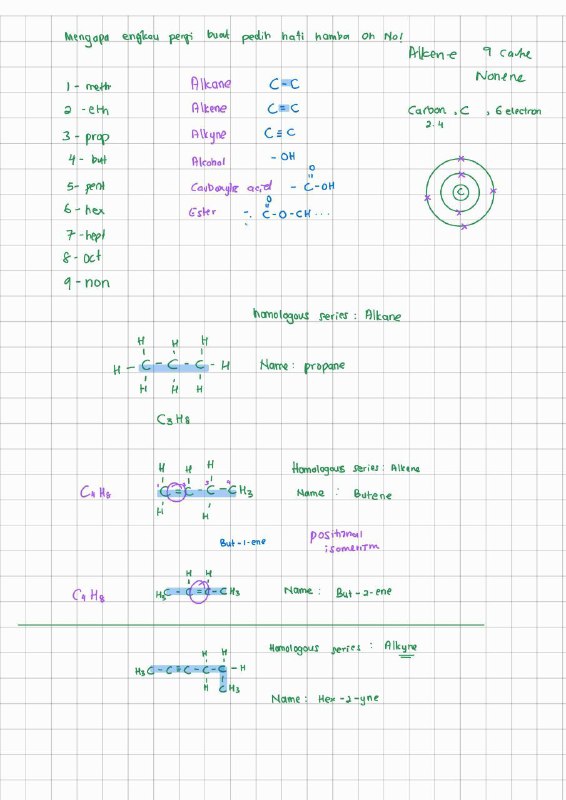 Mengapa engkau pergi buat pedih hati hamba Oh No!
Alkene 9 carbon
Nonene
1 - meth
2 - eth
3 - prop
4 - but
5 - pent
6 - hex
7 - hept
8 - Oct
9 - non
Alkane C - C
Alkene C = C
Alkyne C ≡ C
Alcohol - OH
O
Carboxylic acid - C - OH
O
Ester - C - O - CH ...
Carbon, C, 6 electron
2.4
C
homologous series : Alkane
H H H
H - C - C - C - H
H H H
Name : propane
C3H8
Homologous series : Alkene
C4H8
H H H
C = C - C - CH3
H H
Name : Butene
But-1-ene
positional
isomerism
C4H8
H H
H3C - C = C - CH3
Name : But-2-ene
Homologous series : Alkyne
H H
H3C - C ≡ C - C - C - H
H CH3
Name : Hex-2-yne